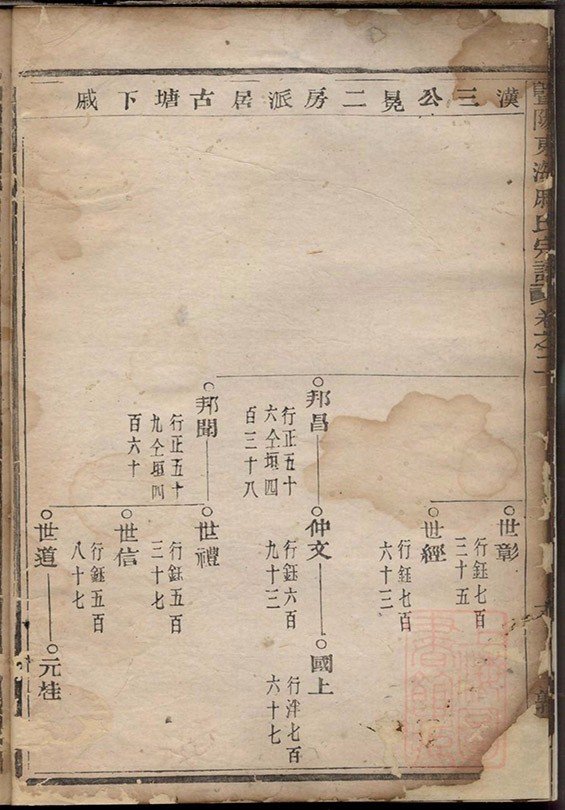 漢三公晃二房派居古塘下戚
世彰
行鈺七百
三十五
世經
行鈺七百
六十三
邦昌
行正五十
六仝垻四
百三十八
仲文
行鈺六百
九十三
國上
行泮七百
六十七
邦聞
行正五十
九仝垻四
百六十
世禮
行鈺五百
三十七
世信
行鈺五百
八十七
世道
元桂